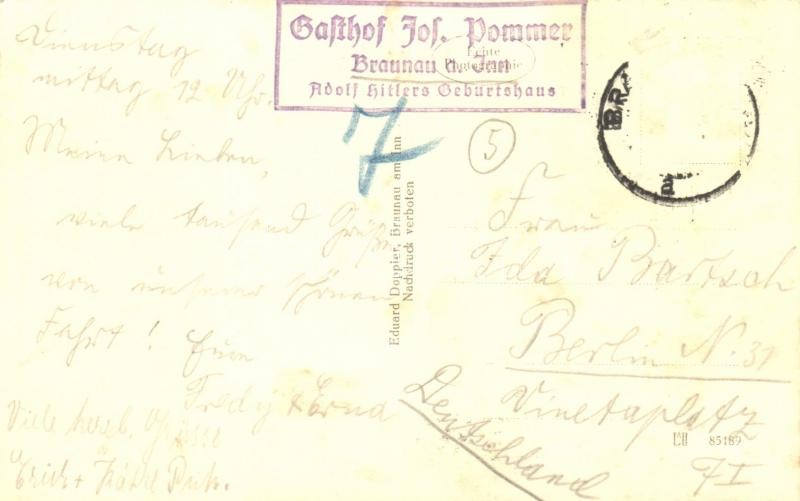 Gasthof Jos. Pommer
Echte
Photographie
Braunau a. Inn
Adolf Hitlers Geburtshaus
Dienstag
mittag 12 Uhr.
Meine Lieben,
viele tausend Grüße
von unserer schönen
Fahrt! Eure
Fredy + Erna
Viele herzl. Grüsse
Erich + Käthe
7
5
BR
a
Eduard Doppler, Braunau am Inn
Nachdruck verboten
Frau
Ida Bartsch
Berlin N. 31
Vinetaplatz
7 I
Deutschland
85189